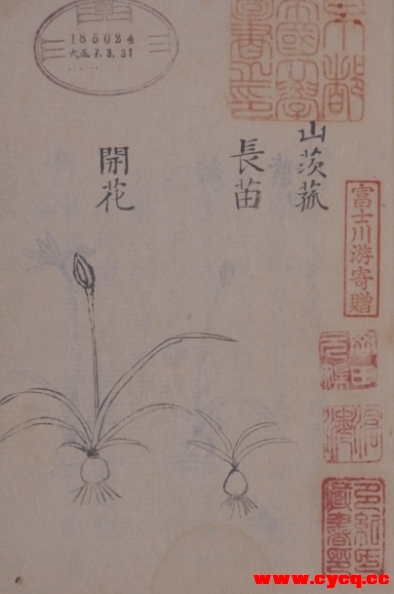 山茨菰
長苗
開花
京都
帝國大學
圖書之印
富士川游寄贈
大正7.3.31
www.cycq.cc